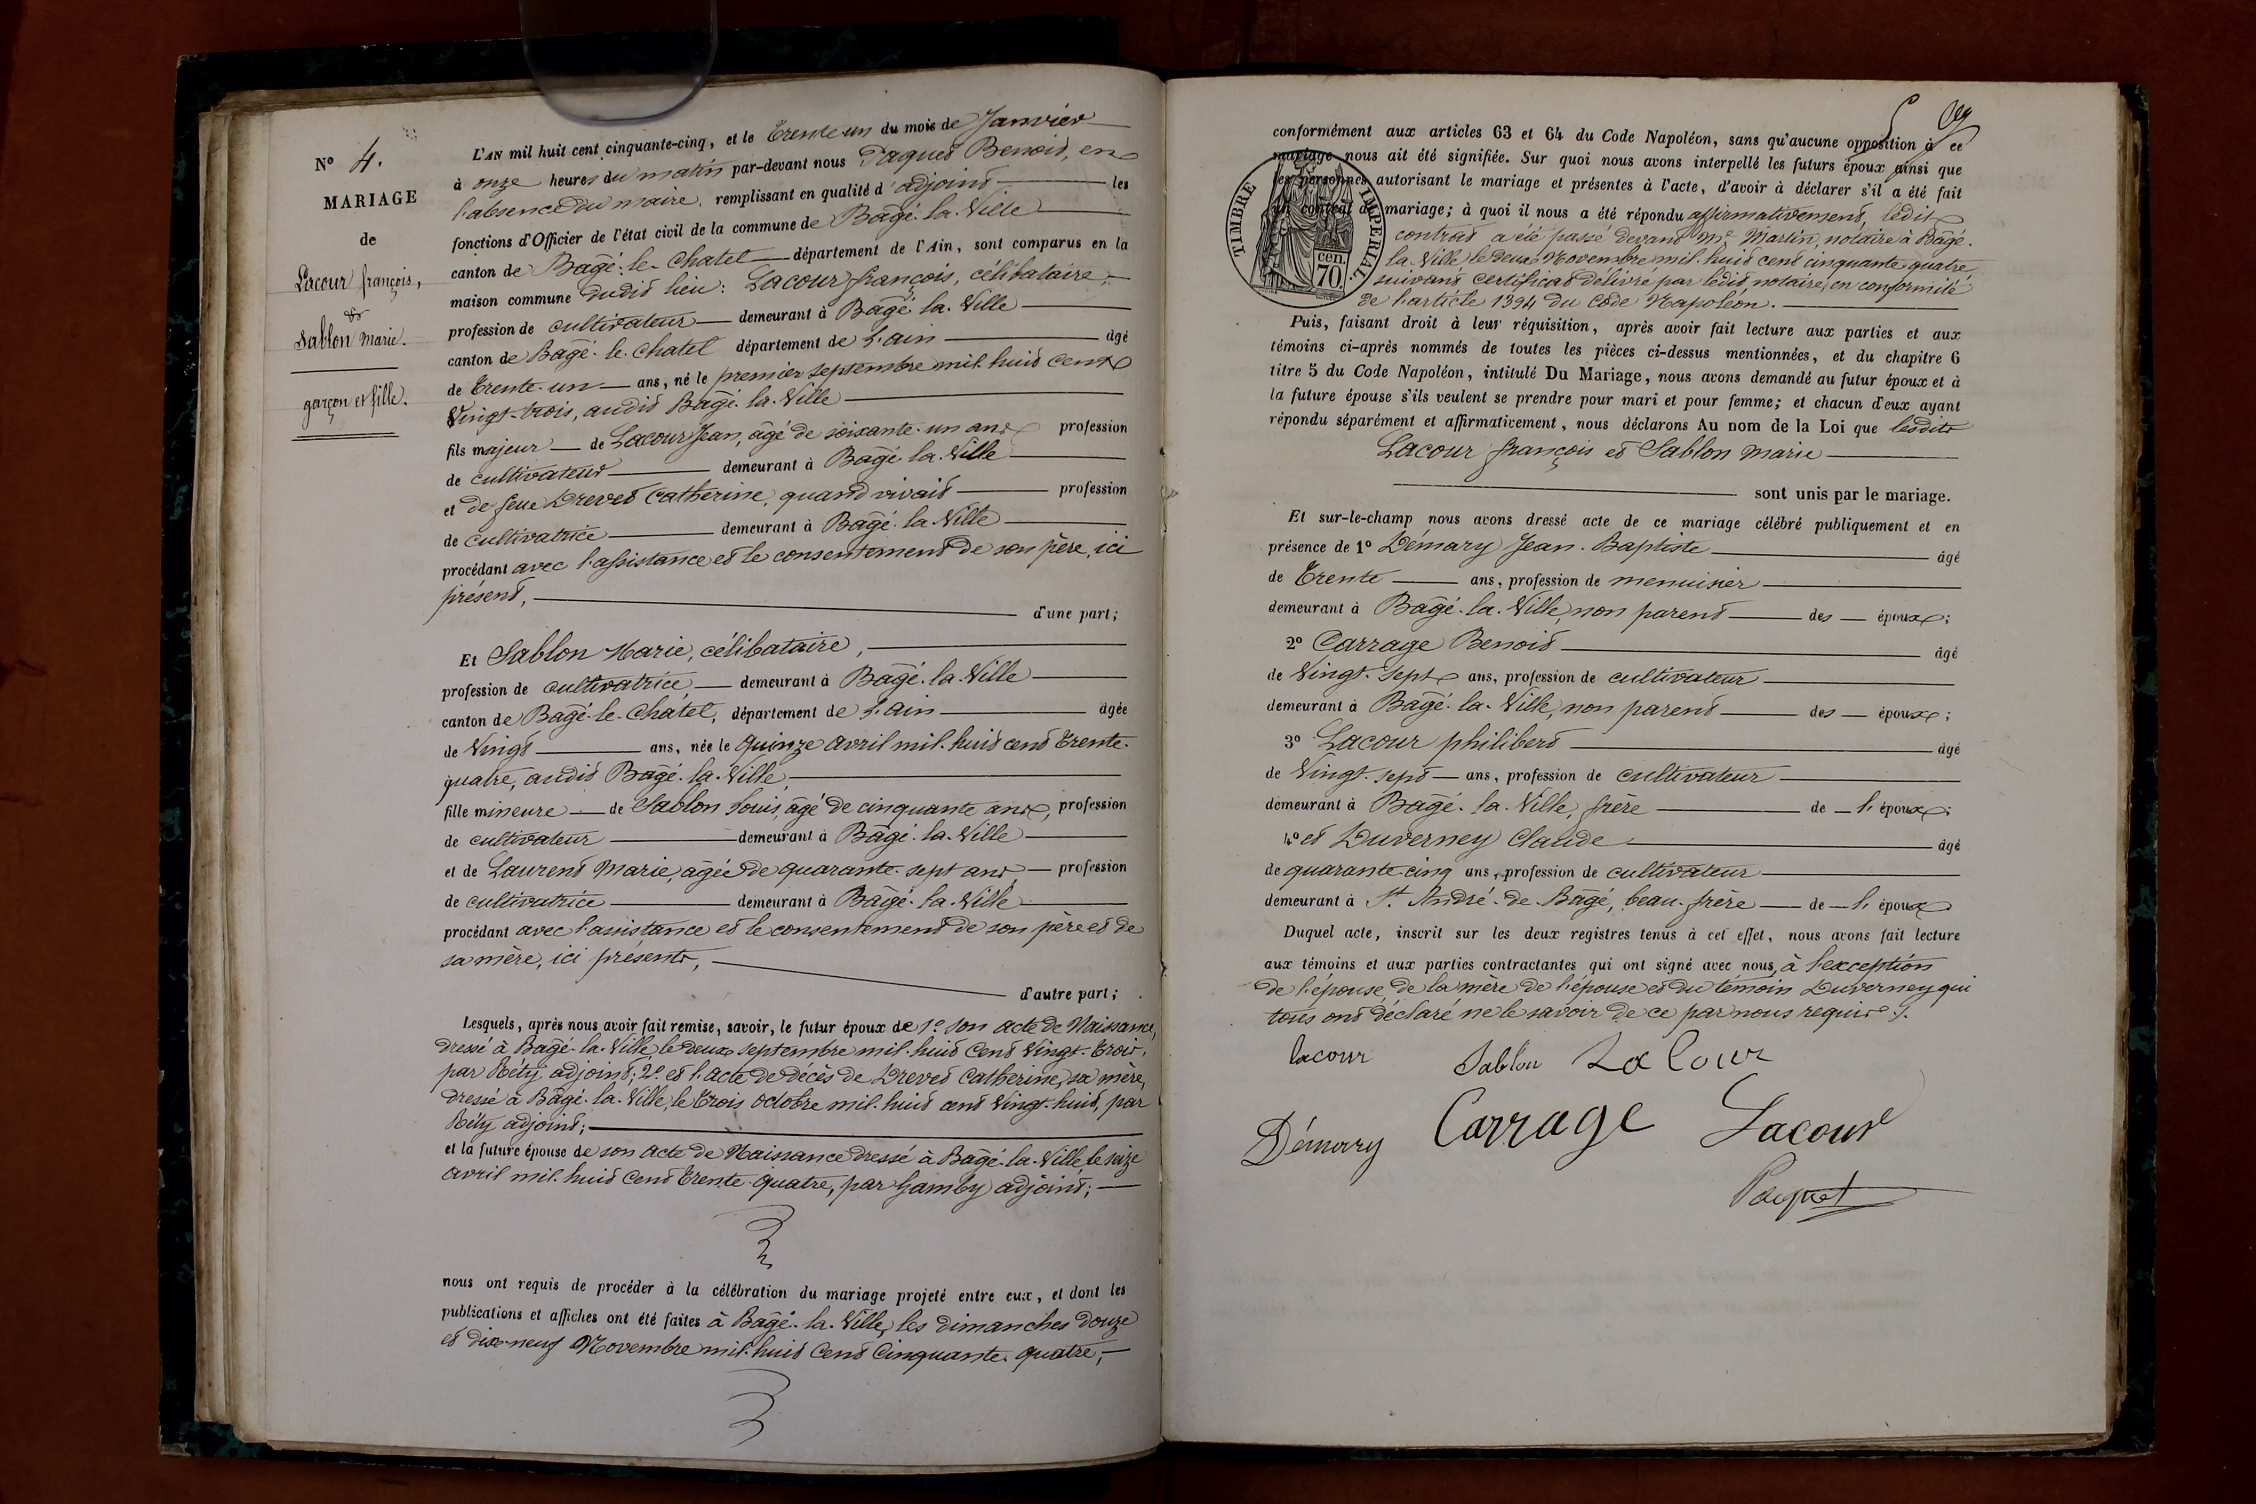 N° 4.
MARIAGE
de
Lacour françois,
et
Sablon Marie.
garçon et fille.
L'AN mil huit cent cinquante-cinq, et le Trente un du mois de Janvier
à onze heures du matin par-devant nous Paquet Benoit, en
l'absence du maire, remplissant en qualité d'adjoint les
fonctions d'Officier de l'état civil de la commune de Bâgé-la-Ville
canton de Bâgé-le-Chatel département de l'Ain, sont comparus en la
maison commune dudit lieu: Lacour françois, célibataire,
profession de cultivateur demeurant à Bâgé-la-Ville
canton de Bâgé-le-Chatel département de L'ain âgé
de Trente-un ans, né le premier septembre mil-huit cent
Vingt-trois, audit Bâgé-la-Ville
fils majeur de Lacour Jean, âgé de soixante-un ans profession
de cultivateur demeurant à Bâgé-la-Ville
et de feue Drevet Catherine, quand vivait profession
de cultivatrice demeurant à Bâgé-la-Ville
procédant avec l'assistance et le consentement de son père, ici
présent, d'une part;
Et Sablon Marie, célibataire,
profession de cultivatrice, demeurant à Bâgé-la-Ville
canton de Bâgé-le-Chatel, département de L'ain âgée
de Vingt ans, née le quinze avril mil-huit cent Trente-
quatre, audit Bâgé-la-Ville,
fille mineure de Sablon Louis, âgé de cinquante ans, profession
de cultivateur demeurant à Bâgé-la-Ville
et de Laurent Marie, âgée de quarante-sept ans, profession
de cultivatrice demeurant à Bâgé-la-Ville
procédant avec l'assistance et le consentement de son père et de
sa mère, ici présents,
d'autre part;
Lesquels, après nous avoir fait remise, savoir, le futur époux de 1° son acte de Naissance,
dressé à Bâgé-la-Ville le deux septembre mil-huit cent Vingt-Trois,
par Réty adjoint; 2° et l'acte de décès de Drevet Catherine, sa mère,
dressé à Bâgé-la-Ville, le Trois octobre mil-huit cent Vingt-huit, par
Réty adjoint;
et la future épouse de son acte de Naissance dressé à Bâgé-la-Ville le seize
avril mil-huit Cent Trente-quatre, par Gamby adjoint;
nous ont requis de procéder à la célébration du mariage projeté entre eux, et dont les
publications et affiches ont été faites à Bâgé-la-Ville, les dimanches douze
et dix-neuf Novembre mil-huit Cent Cinquante-quatre,
conformément aux articles 63 et 64 du Code Napoléon, sans qu'aucune opposition à ce
mariage nous ait été signifiée. Sur quoi nous avons interpellé les futurs époux ainsi que
les personnes autorisant le mariage et présentes à l'acte, d'avoir à déclarer s'il a été fait
un contrat de mariage; à quoi il nous a été répondu affirmativement, ledit
contrat a été passé devant Me Martin, notaire à Bâgé-
la-Ville le deux Novembre mil-huit cent cinquante-quatre,
suivant certificat délivré par ledit notaire, en conformité
de l'article 1394 du Code Napoléon.
TIMBRE IMPERIAL.
cen.
70.
Puis, faisant droit à leur réquisition, après avoir fait lecture aux parties et aux
témoins ci-après nommés de toutes les pièces ci-dessus mentionnées, et du chapitre 6
titre 5 du Code Napoléon, intitulé Du Mariage, nous avons demandé au futur époux et à
la future épouse s'ils veulent se prendre pour mari et pour femme; et chacun d'eux ayant
répondu séparément et affirmativement, nous déclarons Au nom de la Loi que lesdits
Lacour françois et Sablon Marie
sont unis par le mariage.
Et sur-le-champ nous avons dressé acte de ce mariage célébré publiquement et en
présence de 1° Démary Jean-Baptiste âgé
de Trente ans, profession de menuisier
demeurant à Bâgé-la-Ville, non parent des époux;
2° Carrage Benoit âgé
de Vingt-Sept ans, profession de cultivateur
demeurant à Bâgé-la-Ville, non parent des époux;
3° Lacour philibert âgé
de Vingt-sept ans, profession de cultivateur
demeurant à Bâgé-la-Ville, frère de l'époux;
4° et Duverney Claude âgé
de quarante-cinq ans, profession de cultivateur
demeurant à St André-de-Bâgé, beau-frère de l'époux
Duquel acte, inscrit sur les deux registres tenus à cet effet, nous avons fait lecture
aux témoins et aux parties contractantes qui ont signé avec nous, à l'exception
de l'épouse, de la mère de l'épouse et du témoin Duverney qui
tous ont déclaré ne le savoir de ce par nous requis./.
lacour Sablon La Cour
Démary Carrage Lacour
Paquet